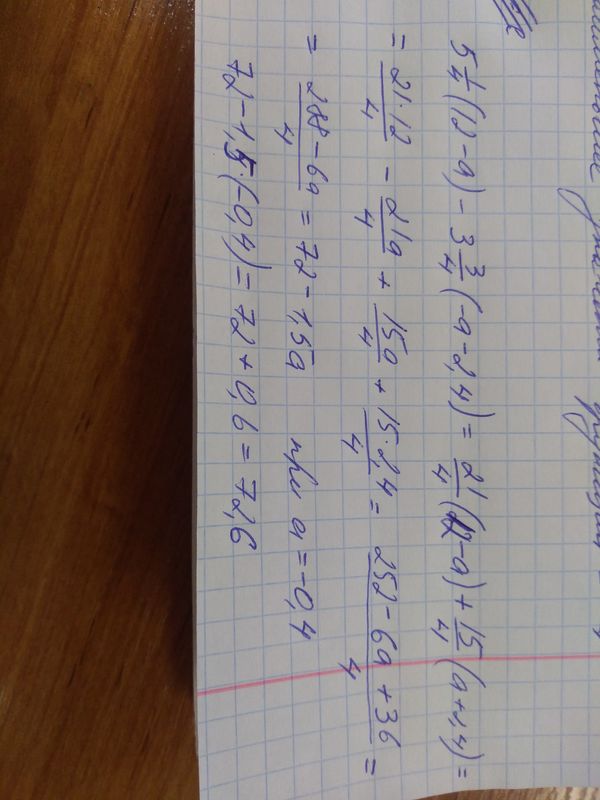 5 1/4 (12 - a) - 3 3/4 (-a - 2,4) = 21/4 (12 - a) + 15/4 (a + 2,4) =
= 21·12/4 - 21a/4 + 15a/4 + 15·2,4/4 = 252 - 6a + 36/4 =
= 288 - 6a/4 = 72 - 1,5a при a = -0,4
72 - 1,5·(-0,4) = 72 + 0,6 = 72,6